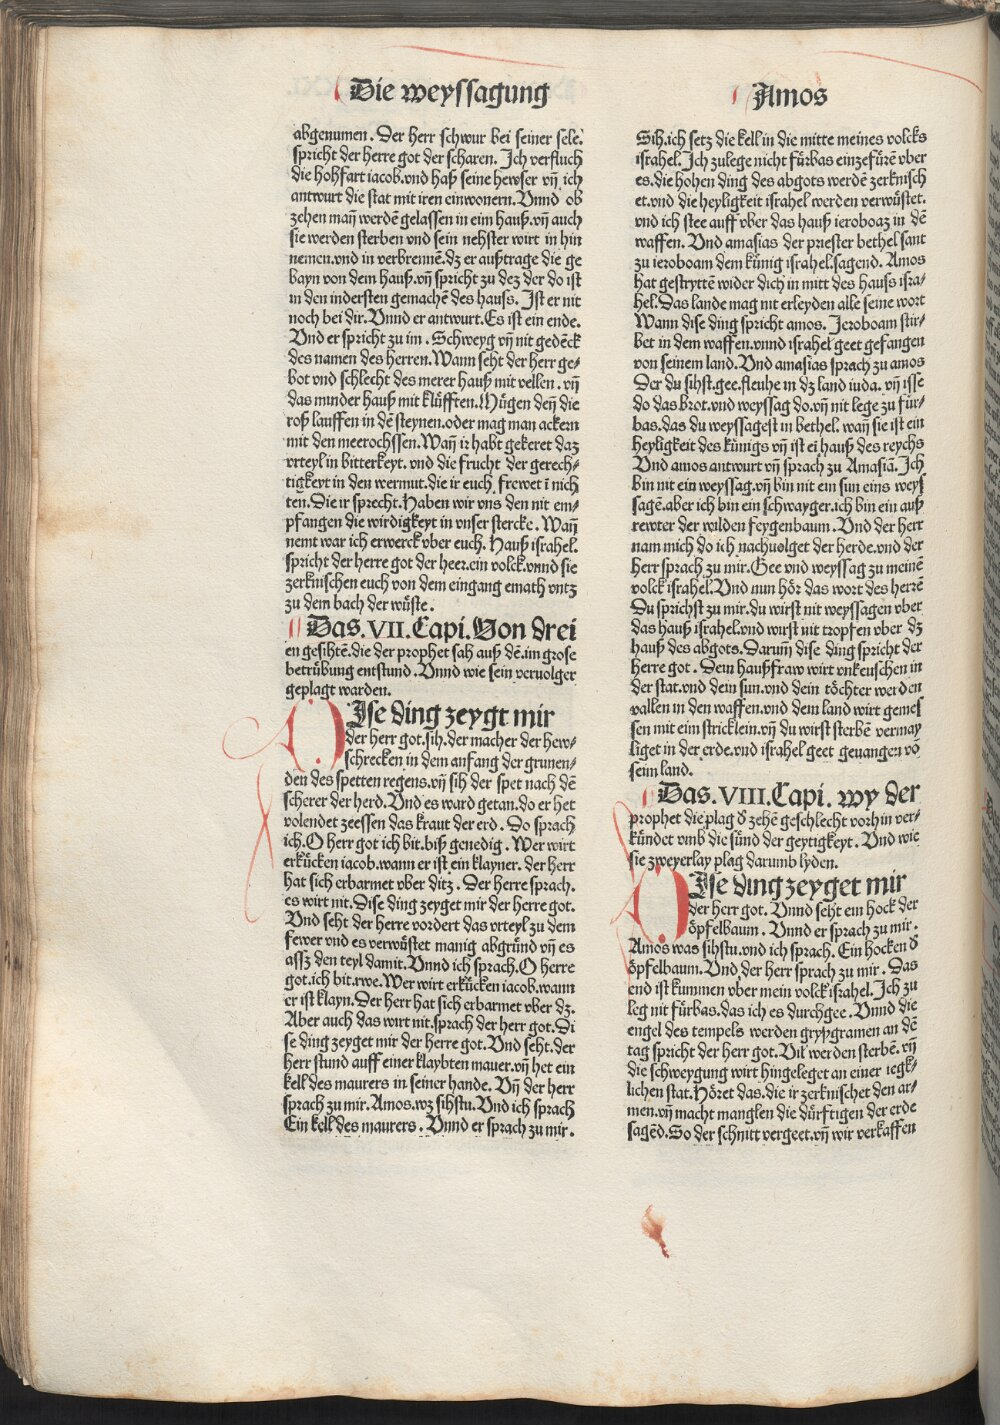 Die weyssagung
Amos
abgenumen. Der herr schwur bei seiner sele.
spricht der herre got der scharen. Ich verfluch
die hohfart iacob.vnd haß seine hewser vñ ich
antwurt die stat mit iren einwonern. Vnnd ob
zehen mañ werdẽ gelassen in eim hauß.vñ auch
sie werden sterben vnd sein nehster wirt in hin
nemen.vnd in verbrennẽ.dz er außtrage die ge
bayn von dem hauß.vñ spricht zu dez der do ist
in den indersten gemachẽ des hauss. Ist er nit
noch bei dir. Vnnd er antwurt.Es ist ein ende.
Vnd er spricht zu im. Schweyg vñ nit gedẽck
des namen des herren.Wann seht der herr ge-
bot vnd schlecht des merer hauß mit vellen. vñ
das munder hauß mit klüfften.Mügen deñ die
roß lauffen in dẽ steynen.oder mag man ackern
mit den meerochssen.Wañ ir habt gekeret daz
vrteyl in bitterkeyt. vnd die frucht der gerech-
tigkeyt in den wermut.die ir euch frewet ĩ nich
ten.Die ir sprecht.Haben wir vns den nit em-
pfangen die wirdigkeyt in vnser stercke. Wañ
nemt war ich erweck vber euch. Hauß israhel.
spricht der herre got der heer.ein volck.vnnd sie
zerknischen euch von dem eingang emath vntz
zu dem bach der wüste.
Das.VII.Capi.Von drei
en gesihtẽ.die der prophet sah auß dẽ.im grose
betrübung entstund. Vnnd wie sein vervolger
geplagt warden.
Ise ding zeygt mir
der herr got.sih.der macher der hew-
schrecken in dem anfang der grunen-
den des spetten regens.vñ sih der spet nach dẽ
scherer der herd.Vnd es ward getan.do er het
volendet zeessen das kraut der erd. Do sprach
ich.O herr got ich bit.biß genedig. Wer wirt
erkücken iacob.wann er ist ein klayner. der herr
hat sich erbarmet vber ditz. Der herre sprach.
es wirt nit.Dise ding zeyget mir der herre got.
Vnd seht der herre vordert das vrteyl zu dem
fewer vnd es verwüstet manig abgründ vñ es
assz den teyl damit.Vnnd ich sprach.O herre
got.ich bit.rwe.Wer wirt erkücken iacob.wann
er ist klayn.Der herr hat sich erbarmet vber dz.
Aber auch das wirt nit.sprach der herr got.Di
se ding zeyget mir der herre got.Vnd seht.der
herr stund auff einer klaybten mauer.vñ het ein
kell des maurers in seiner hande. Vñ der herr
sprach zu mir.Amos.wz sihstu.Vnd ich sprach
Ein kell des maurers. Vnnd er sprach zu mir.
Sih.ich setz die kell in die mitte meines volcks
israhel. Ich zulege nicht fürbas einzefürẽ vber
es.die hohen ding des abgots werdẽ zerknisch
et.vnd die heyligkeit israhel werden verwüstet.
vnd ich stee auff vber das hauß ieroboaz in dẽ
waffen. Vnd amasias der priester bethel sant
zu ieroboam dem künig israhel.sagend. Amos
hat gestryttẽ wider dich in mitt des hauss isra-
hel.Das lande mag nit erleyden alle seine wort
Wann dise ding spricht amos. Ieroboam stir-
bet in dem waffen.vnnd israhel geet gefangen
von seinem land. Vnd amasias sprach zu amos
Der du sihst.gee.fleuhe in dz land iuda. vñ isse
do das brot.vnd weyssag do.vñ nit lege zu für-
bas.das du weyssagest in bethel. wañ sie ist ein
heyligkeit des künigs vñ ist eĩ hauß des reychs
Vnd amos antwurt vñ sprach zu Amasiã. Ich
bin nit ein weyssag.vñ bin nit ein sun eins weyſ
sagẽ.aber ich bin ein schwayger.ich bin ein auß
rewter der wilden feygenbaum. Vnd der herr
nam mich do ich nachuolget der herde.vnd der
herr sprach zu mir.Gee vnd weyssag zu meinẽ
volck israhel.Vnd nun hör das wort des herrẽ
Du sprichst zu mir.du wirst nit weyssagen vber
das hauß israhel.vnd wirst nit tropfen vber dz
hauß des abgots. Darum̃ dise ding spricht der
herre got. Dein haußfraw wirt vnkeuschen in
der stat.vnd dein sun.vnd dein töchter werden
vallen in den waffen.vnd dem land wirt gemes
sen mit eim stricklein.vñ du wirst sterbẽ vermay
liget in der erde.vnd israhel geet geuangen võ
seim land.
Das.VIII.Capi. wy der
prophet die plag ď zehẽ geschlecht vorhin ver-
kündet vmb die sünd der geytigkeyt. Vnd wie
sie zweyerlay plag darumb lyden.
Ise ding zeyget mir
der herr got. Vnnd seht ein hock der
öpfelbaum. Vnnd er sprach zu mir.
Amos was sihstu.vnd ich sprach. Ein hocken ď
öpfelbaum.Vnd der herr sprach zu mir. Das
end ist kummen vber mein volck israhel.Ich zu
leg nit fürbas.das ich es durchgee. Vnnd die
engel des tempels werden gryßgramen an dẽ
tag spricht der herr got. Vil werden sterbẽ. vñ
die schweygung wirt hingeleget an einer iegk-
lichen stat.Höret das.die ir zerknischet den ar-
men.vñ macht manglen die dürftigen der erde
sagẽd.So der schnitt vergeet.vñ wir verkaffen